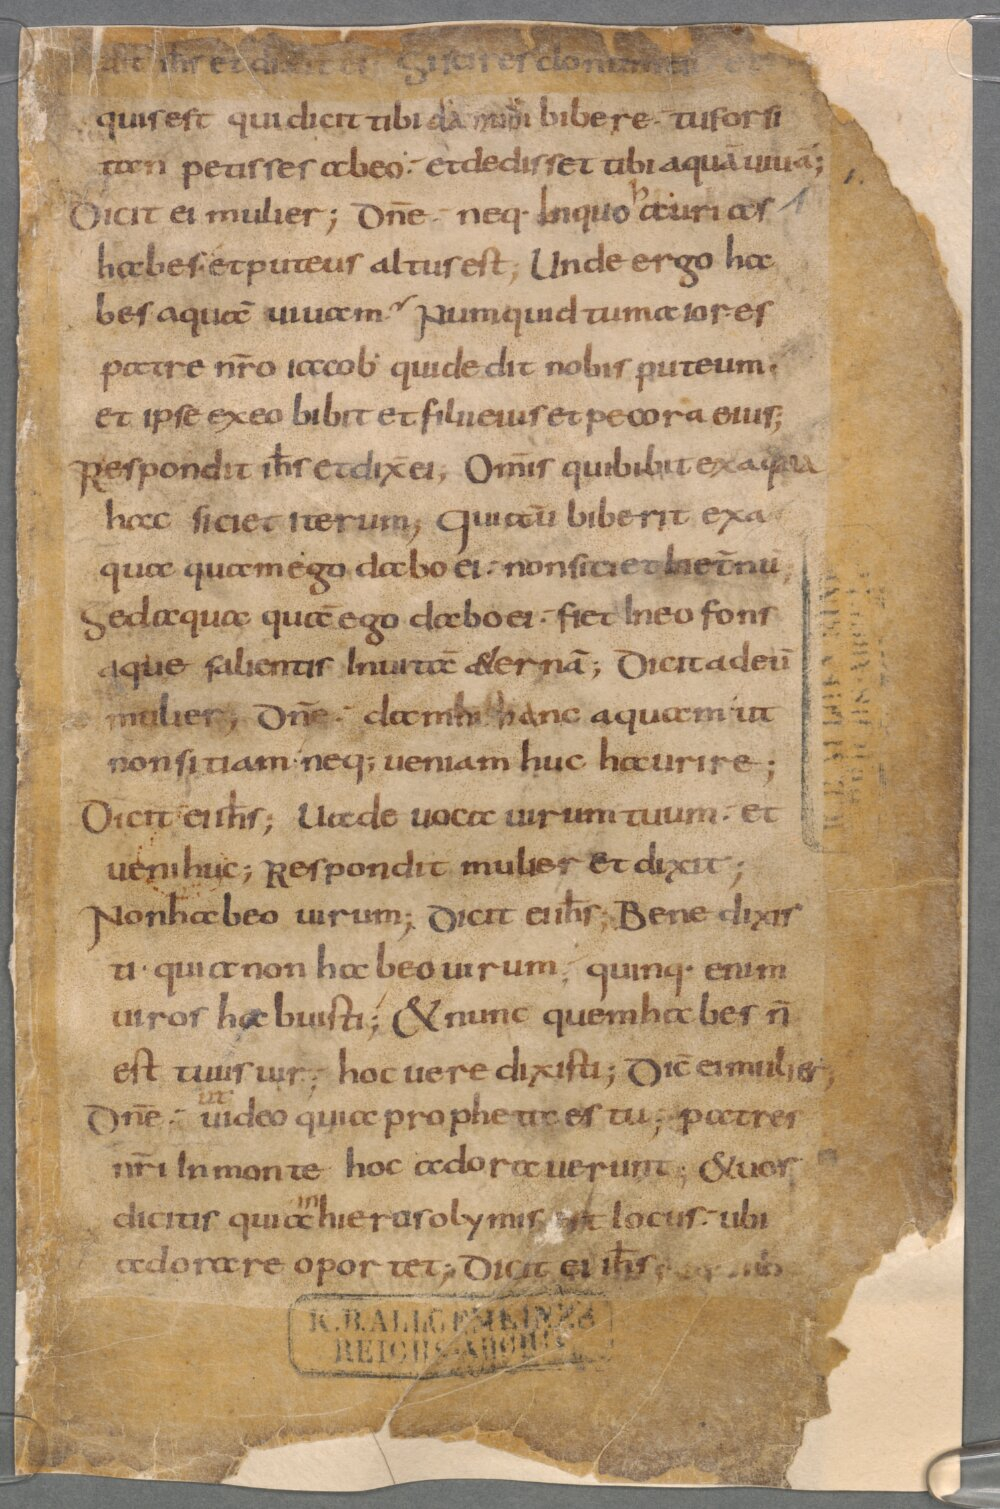 ait ihs et dixit ei Si scires donum dei et
quis est qui dicit tibi da mihi bibere· tu forsi
tan petisses abeo· et dedisset tibi aquā uiuā;
Dicit ei mulier; Dn̄e· neq· In quo haurias
habes· et puteus altus est; Unde ergo ha
bes aquā uiuam? Numquid tu maior es
patre nr̄o iacob qui dedit nobis puteum·
et ipse ex eo bibit et filii eius et pecora eius;
Respondit ihs̄ et dix̄ ei; Omīs qui bibit ex aqua
hac sitiet iterum; Qui aū biberit ex a
qua quam ego dabo ei· non sitiet In et̄nū;
Sed aqua quā ego dabo ei· fiet In eo fons
aque salientis In uitā &ernā; Dicit ad eū
mulier; Dn̄e· da mihi hanc aquam ut
non sitiam· neq; ueniam huc haurire;
Dicit ei ihs̄; Uade uoca uirum tuum· et
ueni huc; Respondit mulier et dixit;
Non habeo uirum; Dicit ei ihs̄; Bene dixis
ti· quia non habeo uirum; quinq· enim
uiros habuisti; & nunc quem habes n̄
est tuus uir; hoc uere dixisti; Dic̄ ei mulier;
Dn̄e· ut uideo quia propheta es tu; patres
nr̄i In monte hoc adorauerunt; & uos
dicitis quia in hierosolymis est locus· ubi
adorare oportet; Dicit ei ihs̄;
K.B. ALLGEMEINES
REICHS-ARCHIV